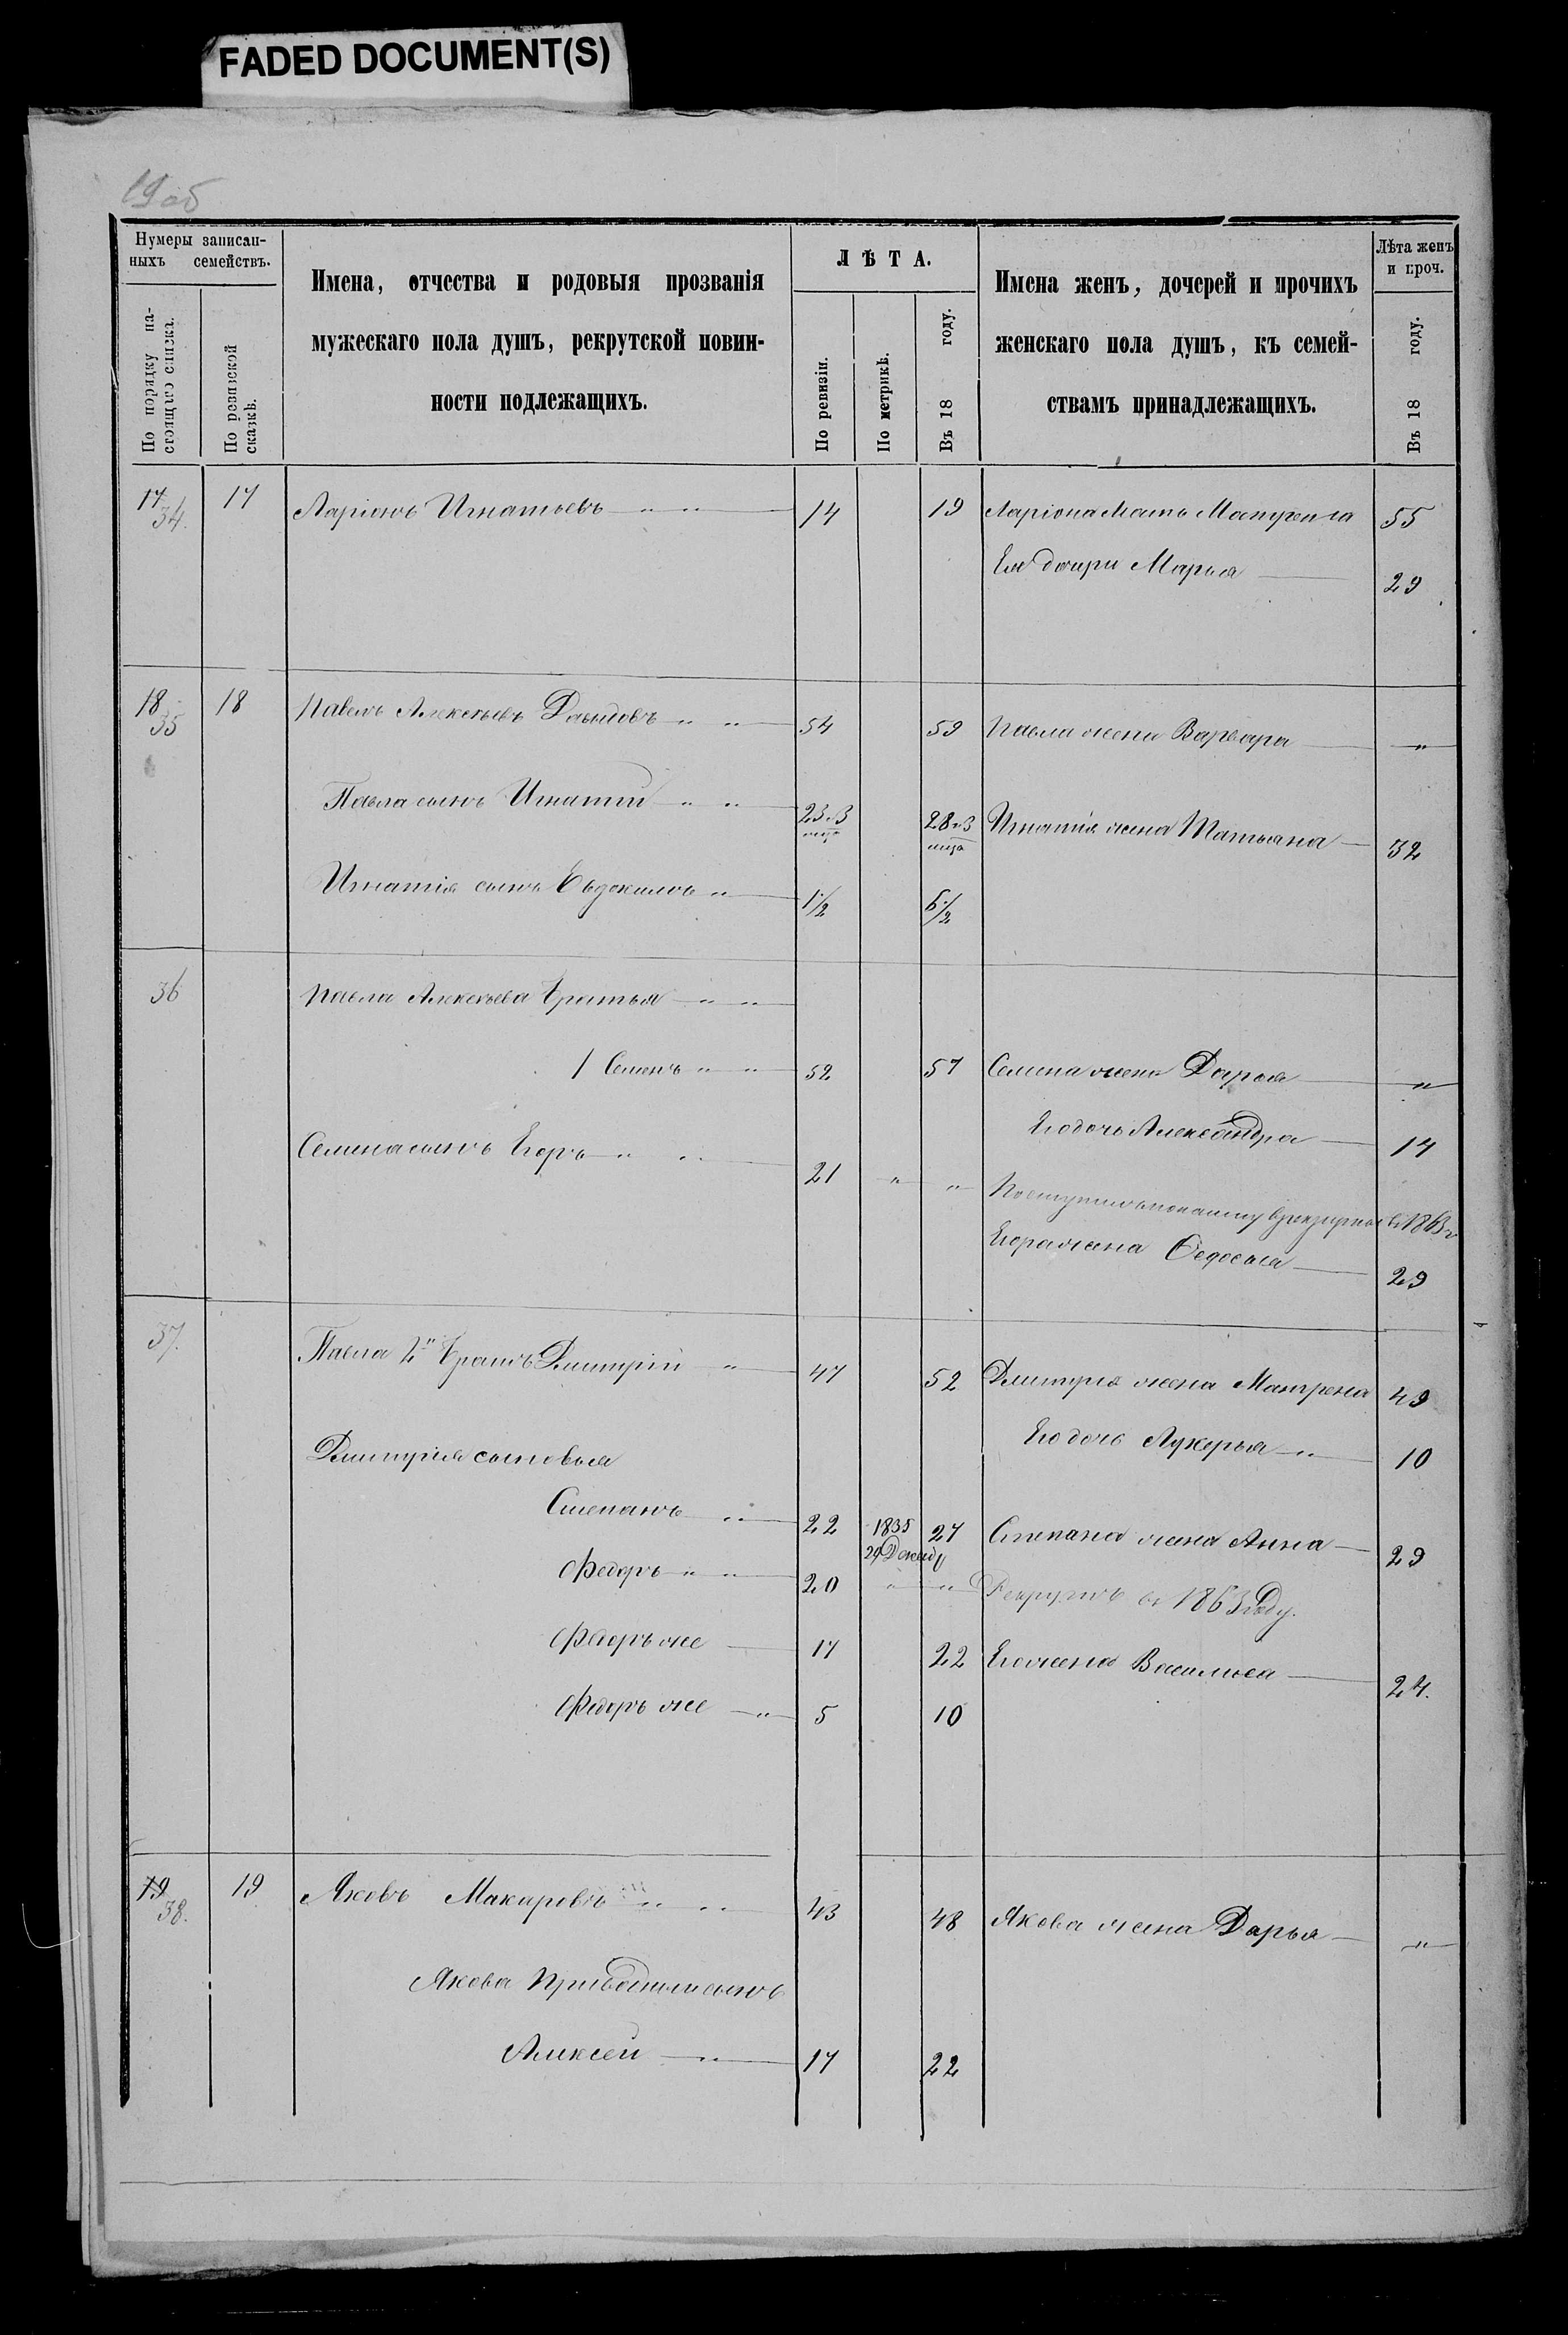 FADED DOCUMENT(S)
19 об
Нумеры записан-
ныхъ семействъ.
По порядку на-
стоящаго списка.
По ревизской
сказкѣ.
Имена, отчества и родовыя прозванія
мужескаго пола душъ, рекрутской повин-
ности подлежащихъ.
ЛѢТА.
По ревизіи.
По метрикѣ.
Въ 18 году.
Имена женъ, дочерей и прочихъ
женскаго пола душъ, къ семей-
ствамъ принадлежащихъ.
Лѣта женъ
и проч.
Въ 18 году.
17 34. 17 Ларіонъ Игнатьевъ 14 19 Ларіона мать Матрена 55
Ея дочери Марья 29
18 35 18 Павелъ Алексѣевъ Давыдовъ 54 59 Павла жена Варвара "
Павла сынъ Игнатій 23 и 3 мца 28 и 3 мца Игнатія жена Татьяна 32
Игнатія сынъ Евдокимъ 1 1/2 6 1/2
36 Павла Алексѣева братья
1 Семенъ 52 57 Семена жена Дарья "
Его дочь Александра 14
Семена сынъ Егоръ 21 " " Поступилъ по найму въ рекруты въ 1863 г
Егора жена Федосья 29
37. Павла 2й братъ Дмитрій 47 52 Дмитрія жена Матрена 49
Его дочь Лукерья 10
Дмитрія сыновья
Степанъ 22 1835 27 Степана жена Анна 29
29 Декабр
Федоръ 20 " " Рекрутъ въ 1863 году.
Федоръ же 17 22 Его жена Василиса 24.
Федоръ же 5 10
19 38. 19 Яковъ Макаровъ 43 48 Якова жена Дарья "
Якова приводный сынъ
Алексей 17 22